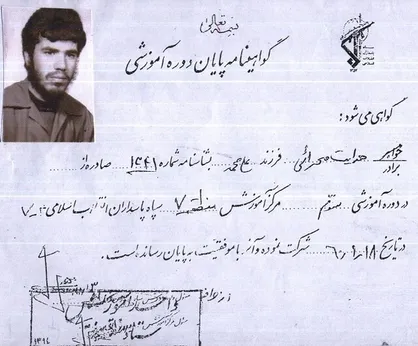 بسمه تعالی
گواهینامه پایان دوره آموزشی
گواهی می شود:
خواهر
برادر هدایت صحرائی فرزند علیمحمد بشناسنامه شماره ۱۳۴۱ صادره از
در دوره آموزشی هشتم مرکز آموزش منطقه ۷ سپاه پاسداران انقلاب اسلامی
در تاریخ ۶۰/۱/۱۸ شرکت نموده و آنرا با موفقیت به پایان رسانده است.